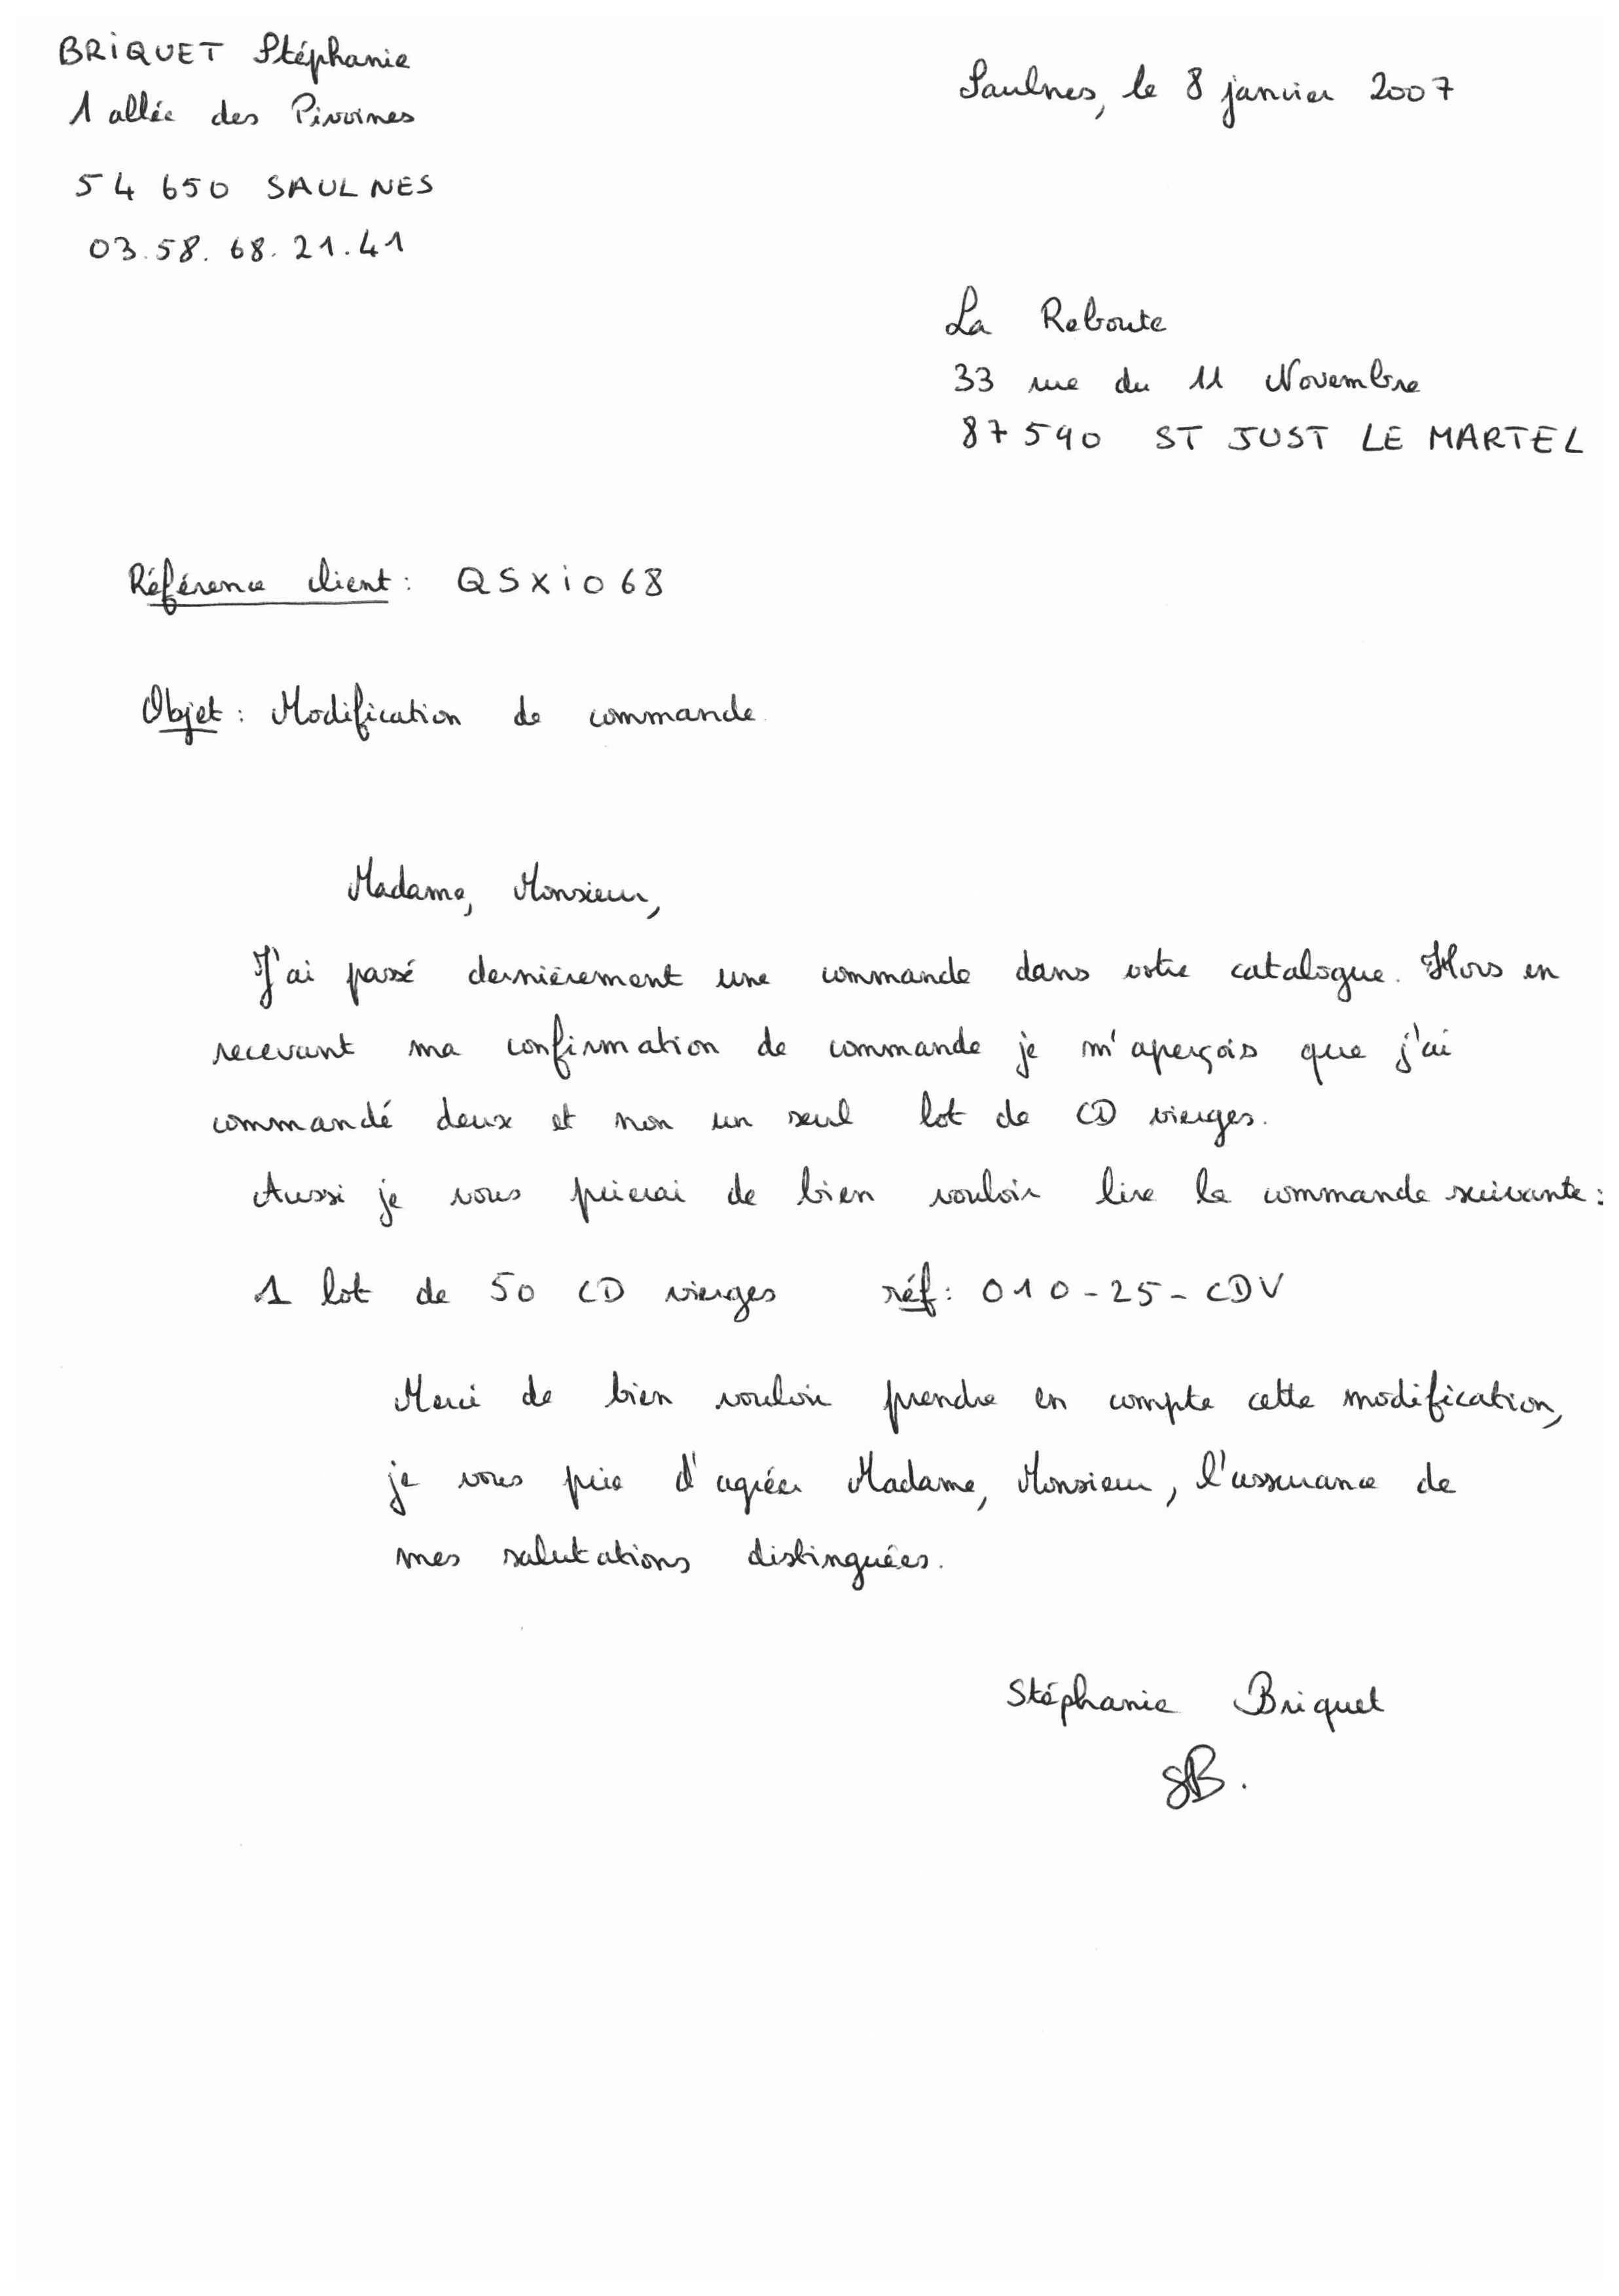 BRIQUET Stéphanie
1 allée des Pivoines
54 650 SAULNES
03.58.68.21.41
Saulnes, le 8 janvier 2007
La Reboute
33 rue du 11 Novembre
87590 ST JUST LE MARTEL
Référence client : QSXIO68
Objet : Modification de commande.
Madame, Monsieur,
J'ai passé dernièrement une commande dans votre catalogue. Hors en
recevant ma confirmation de commande je m'aperçois que j'ai
commandé deux et non un seul lot de CD vierges.
Aussi je vous prierai de bien vouloir lire la commande suivante :
1 lot de 50 CD vierges réf : 010-25-CDV
Merci de bien vouloir prendre en compte cette modification,
je vous prie d'agréer Madame, Monsieur, l'assurance de
mes salutations distinguées.
Stéphanie Briquet
SB.